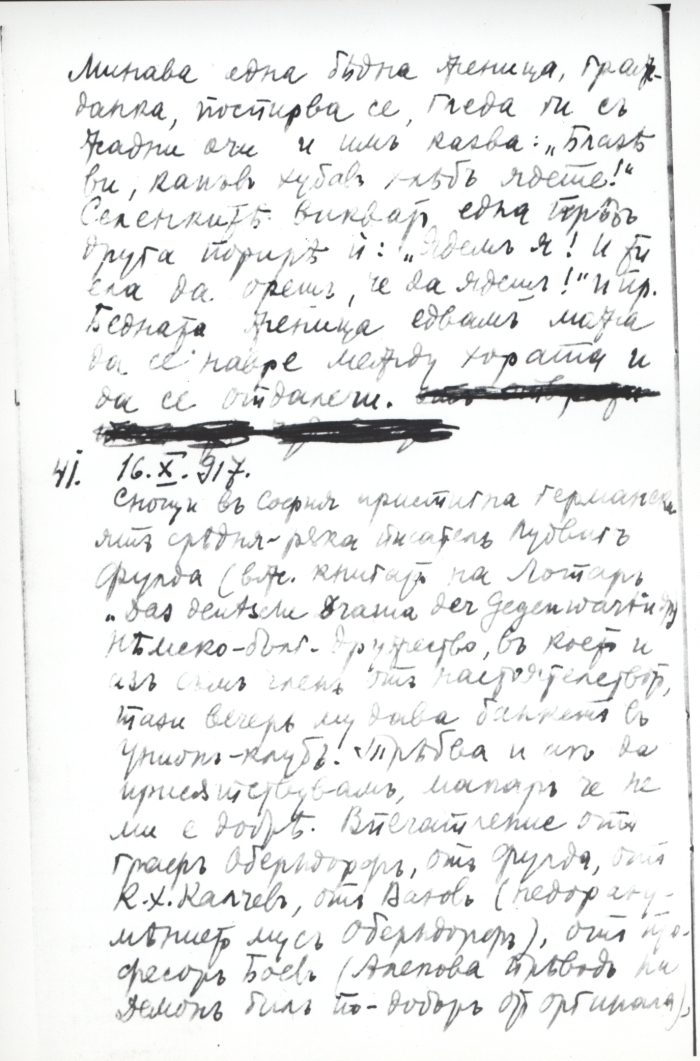 Минава една бѣдна женица, граж-
данка, поспирва се, гледа ги съ
жадни очи и имъ казва: „Блазѣ
ви, какъвъ хубавъ хлѣбъ ядете!“
Селенкитѣ викватъ една прѣзъ
друга подирѣ ѝ: „Ядемъ я! И ти
ела да орешъ, че да ядешъ!“ и пр.
Бедната женица едвамъ можа
да се навре между хората и
да се отдалечи.
41. 16.X.917.
Снощи въ София пристигна германски-
ятъ срѣдня-рѫка писатель Лудвигъ
Фулда (вж. книгата на Лотаръ
„Das deutsche Drama der Gegenwart“ и др.)
Нѣмско-бълг. дружество, въ което и
азъ съмъ членъ отъ настоятелството,
тази вечерь му дава банкетъ въ
Унионъ-клубъ. Трѣбва и азъ да
присѫтствувамъ, макаръ че не
ми е добрѣ. Впечатление отъ
графъ Оберндорфъ, отъ Фулда, отъ
К.Х.Калчевъ, отъ Вазовъ (недоразу-
мѣнието му съ Оберндорфъ), отъ про-
фесоръ Боевъ (Алековия прѣводъ на
Демонъ билъ по-добъръ отъ оргинала),